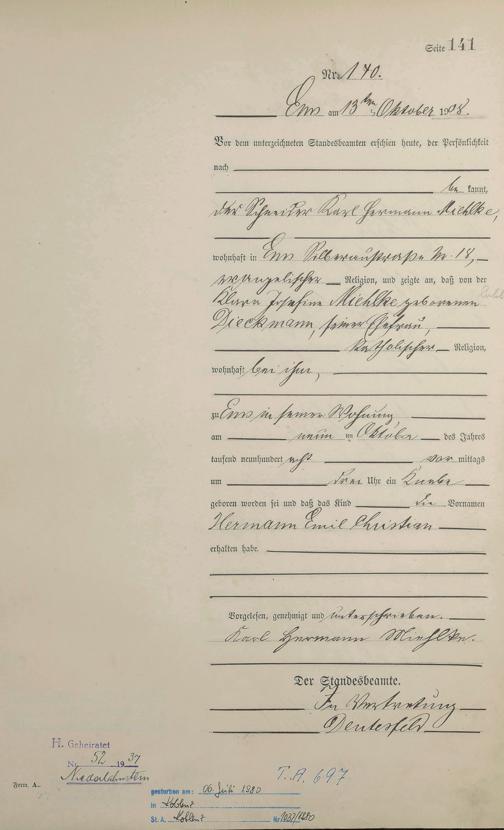 Seite 141
Nr. 140.
Ems am 13ten Oktober 1908.
Vor dem unterzeichneten Standesbeamten erschien heute, der Persönlichkeit
nach
be kannt,
der Schneider Karl Hermann Miehlke,
wohnhaft in Ems Silberaustraße Nr. 18,
evangelischer Religion, und zeigte an, daß von der
Klara Josefine Miehlke geborenen
Dieckmann, seiner Ehefrau,
katholischer Religion,
wohnhaft bei ihm,
zu Ems in seiner Wohnung
am neun ten Oktober des Jahres
tausend neunhundert acht vor mittags
um drei Uhr ein Knabe
geboren worden sei und daß das Kind die Vornamen
Hermann Emil Christian
erhalten habe.
Vorgelesen, genehmigt und unterschrieben.
Karl Hermann Miehlke.
Der Standesbeamte.
In Vertretung
H. Geheiratet
Nr. 52 1937
Niederlahnstein
Form. A.
gestorben am: 06. Juli 1980
in Koblenz
St. A. Koblenz Nr.
T.A. 697